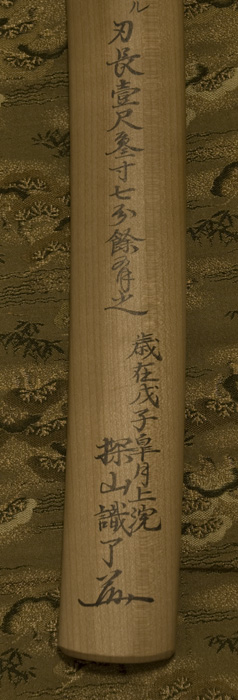 ル
刃長壹尺叄寸七分餘有之
歳在戊子皐月上浣
探山識